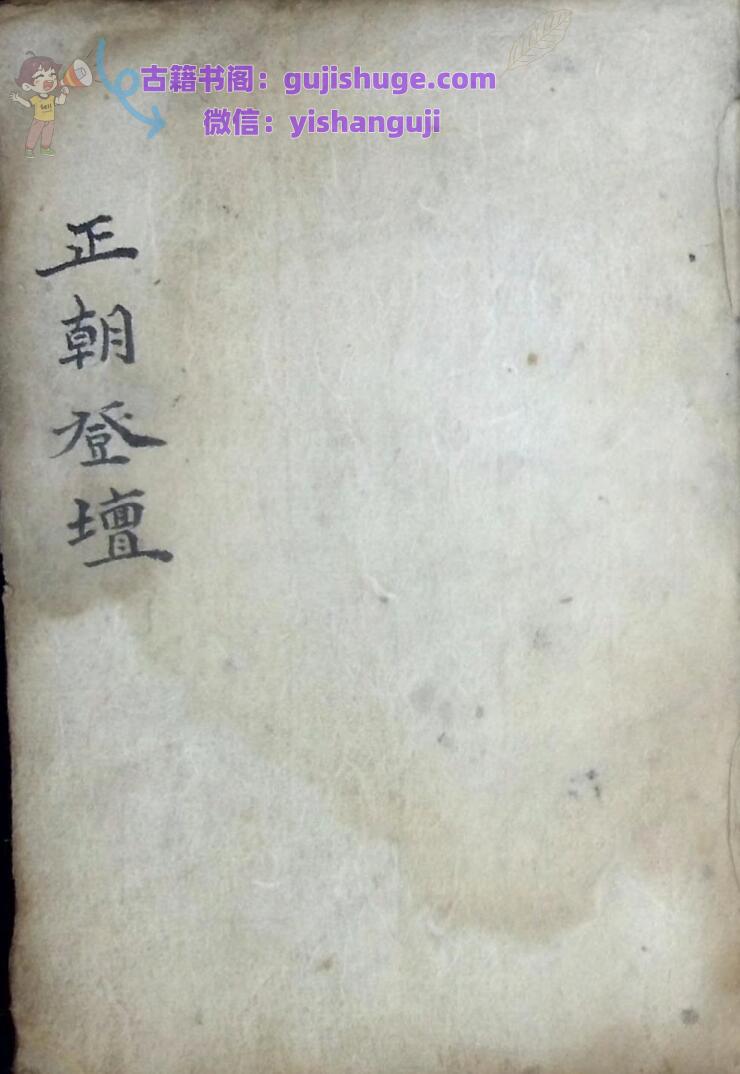 古籍书阁：gujishuge.com
微信：yishanguji
正朝登壇